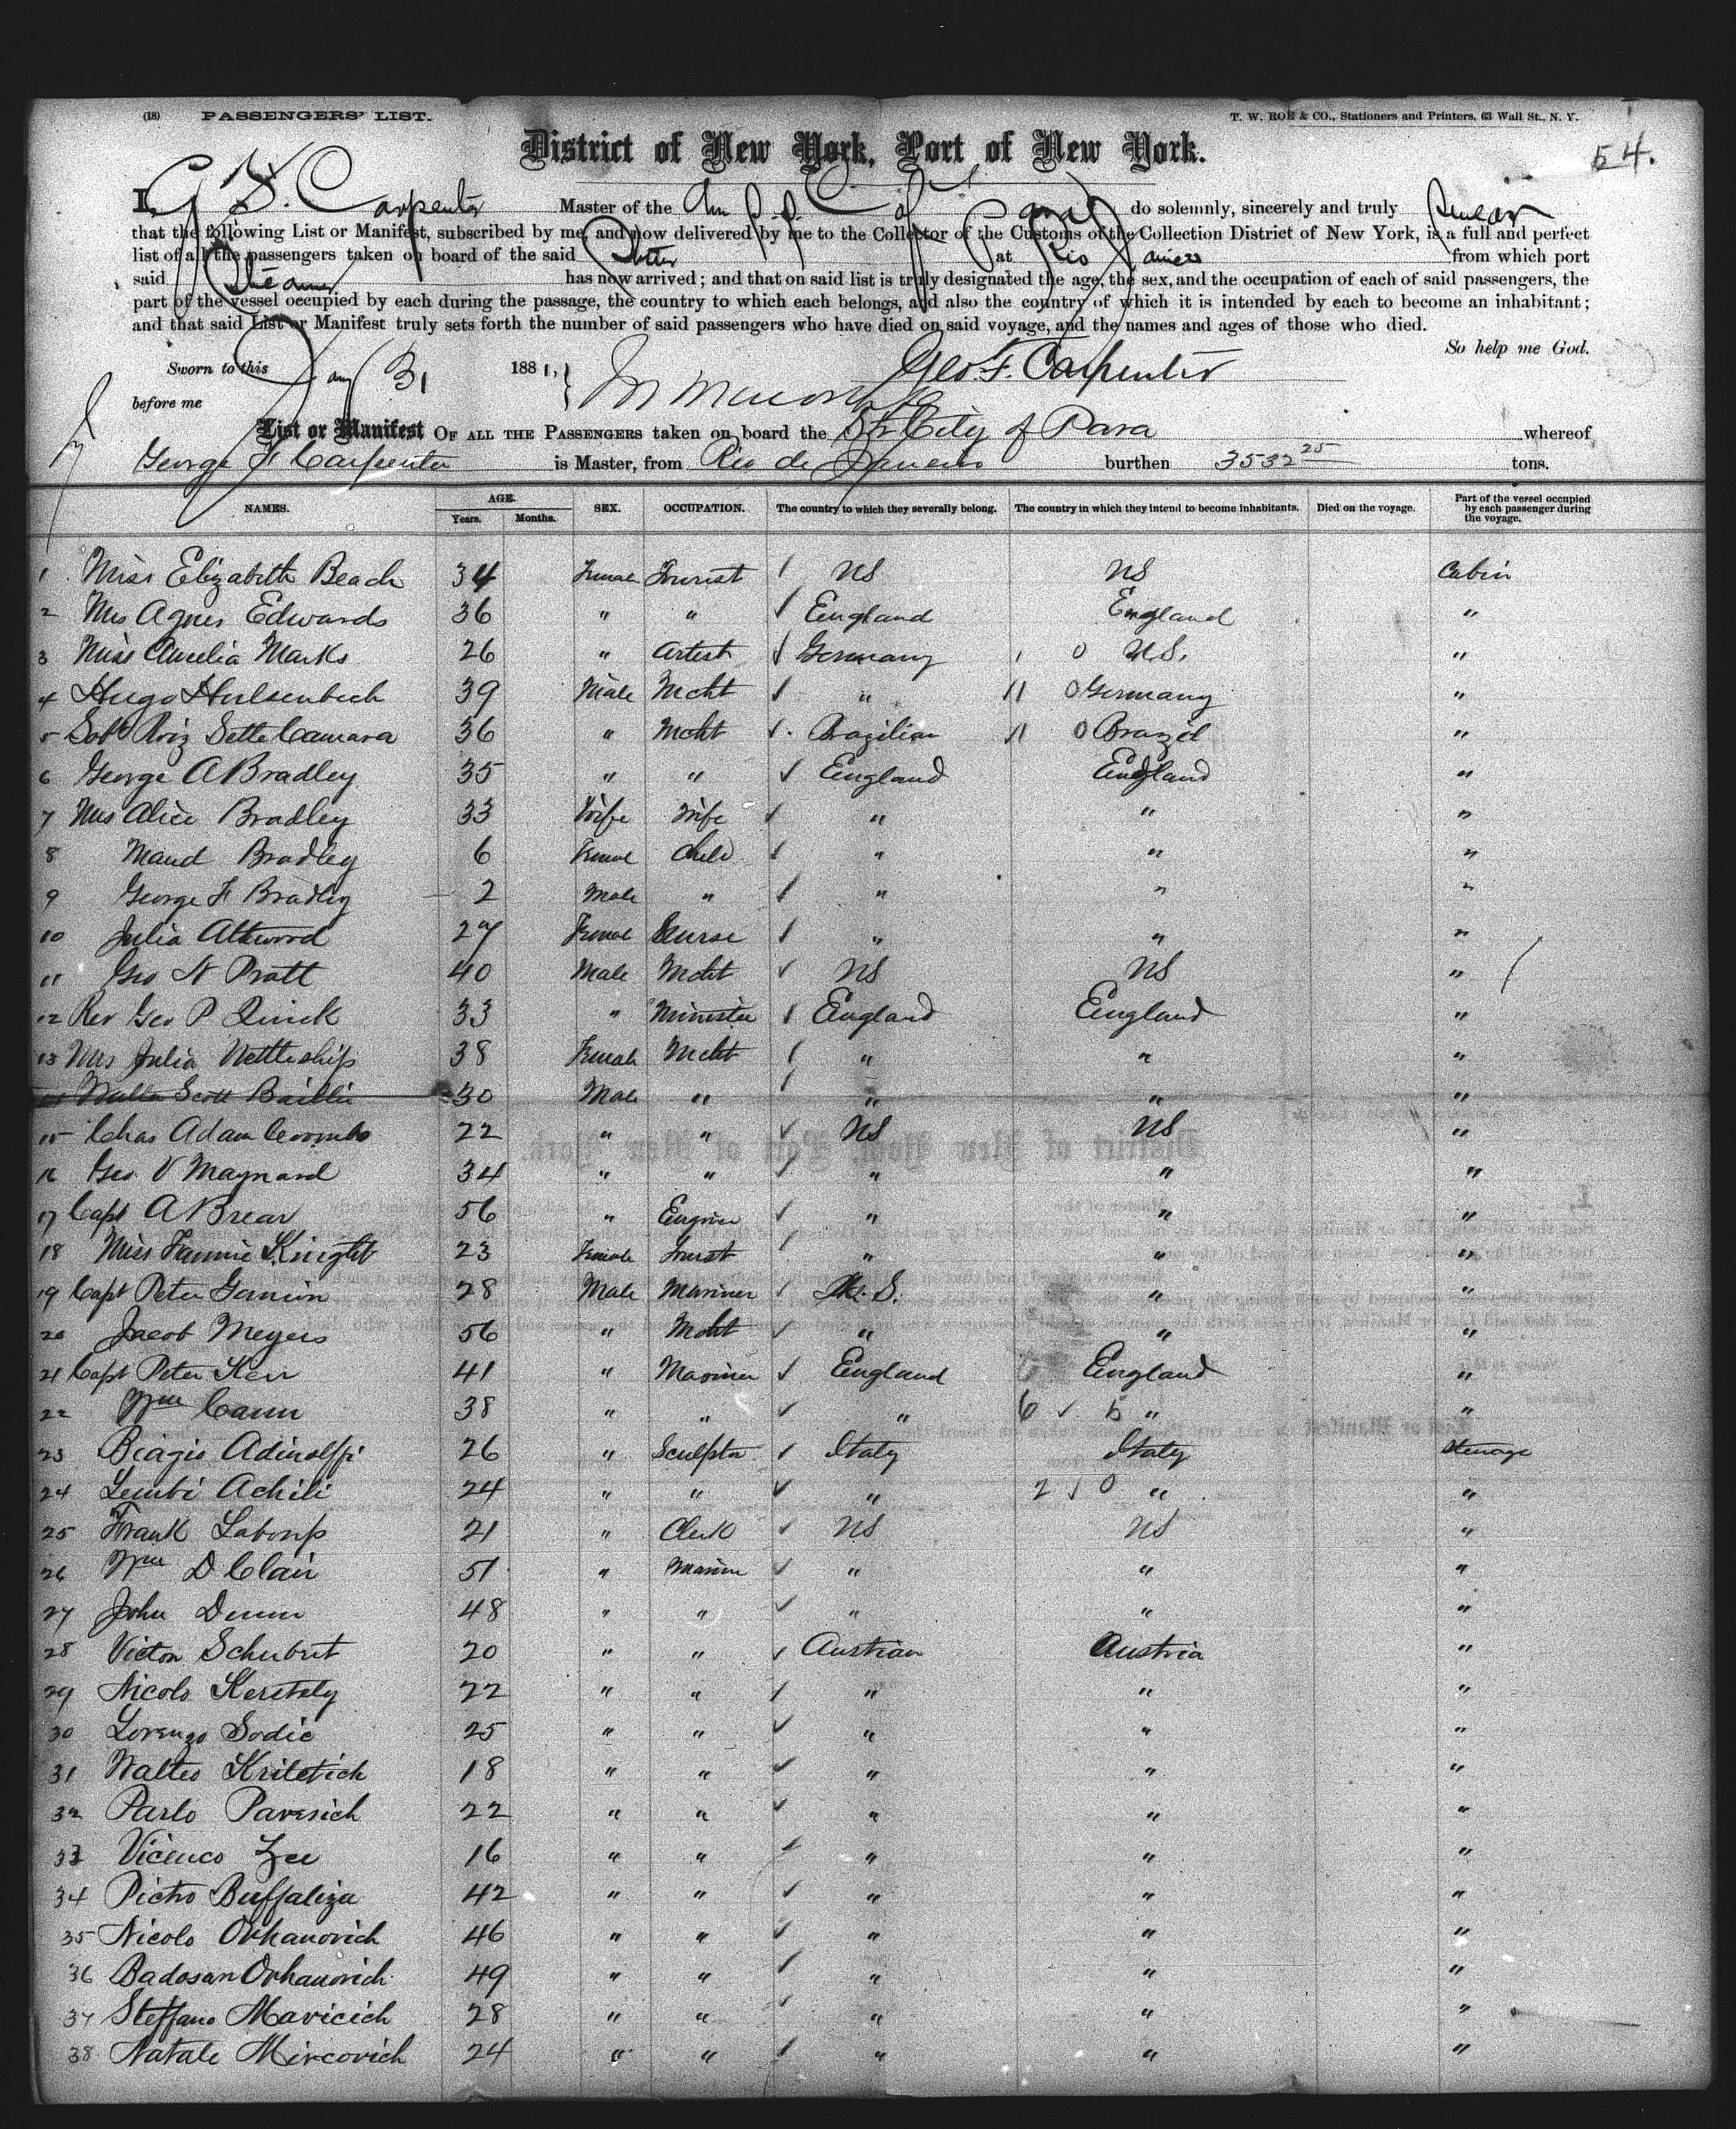 (18) PASSENGERS' LIST. T. W. ROE & CO., Stationers and Printers, 63 Wall St., N. Y.
District of New York, Port of New York. 54.
I, G F. Carpenter Master of the Am S.S. C of Para do solemnly, sincerely and truly swear
that the following List or Manifest, subscribed by me, and now delivered by me to the Collector of the Customs of the Collection District of New York, is a full and perfect
list of all the passengers taken on board of the said at Rio Janeiro from which port
said Steamer has now arrived; and that on said list is truly designated the age, the sex, and the occupation of each of said passengers, the
part of the vessel occupied by each during the passage, the country to which each belongs, and also the country of which it is intended by each to become an inhabitant;
and that said List or Manifest truly sets forth the number of said passengers who have died on said voyage, and the names and ages of those who died.
So help me God.
Sworn to this Jany 31 1881, Geo. F. Carpenter
before me
List or Manifest OF ALL THE PASSENGERS taken on board the Str City of Para whereof
George F Carpenter is Master, from Rio de Janeiro burthen 3532 25 tons.
NAMES. AGE. Years. Months. SEX. OCCUPATION. The country to which they severally belong. The country in which they intend to become inhabitants. Died on the voyage. Part of the vessel occupied by each passenger during the voyage.
1 Miss Elizabeth Beach 34 Female Tourist US US Cabin
2 Mrs Agnes Edwards 36 " " England England "
3 Miss Amelia Marks 26 " Artist Germany 0 U.S. "
4 Hugo Hulsenbech 39 Male Mcht " 11 0 Germany "
5 Roiz Sette Camara 36 " Mcht Brazilian 11 0 Brazil "
6 George A Bradley 35 " " England England "
7 Mrs Alice Bradley 33 Wife Wife " " "
8 Maud Bradley 6 Female Child " " "
9 George F Bradley 2 Male " " " "
10 Julia Attwood 27 Female Nurse " " "
11 Geo N Pratt 40 Male Mcht US US "
12 Rev Geo P Quick 33 " Minister England England "
13 Mrs Julia Nettleship 38 Female Mcht " " "
14 Walter Scott Baillie 30 Male " " " "
15 Chas Adam Coombs 22 " " US US "
16 Geo V Maynard 34 " " " " "
17 Capt A Brear 56 " Engineer " " "
18 Miss Fannie Knight 23 Female Tourst " " "
19 Capt Peter 28 Male Mariner U.S. " "
20 Jacob Meyers 56 " Mcht " " "
21 Capt Peter Kerr 41 " Mariner England England "
22 Wm Cann 38 " " " 6 5 " "
23 Biagio Adinolfi 26 " Sculptor Italy Italy Steerage
24 Lembi Achili 24 " " " 2 0 " "
25 Frank 21 " Clerk US US "
26 Wm D Clair 51 " Marine " " "
27 John Dunn 48 " " " " "
28 Victor Schubert 20 " " Austrian Austria "
29 Nicolo 22 " " " " "
30 Lorenzo Sodic 25 " " " " "
31 Walteo 18 " " " " "
32 Parlo Pavesich 22 " " " " "
33 Vicenco 16 " " " " "
34 Pietro Buffaliza 42 " " " " "
35 Nicolo Orhanovich 46 " " " " "
36 Badosan Orhanovich 49 " " " " "
37 Steffano Mavicich 28 " " " " "
38 Natale Mircovich 24 " " " " "